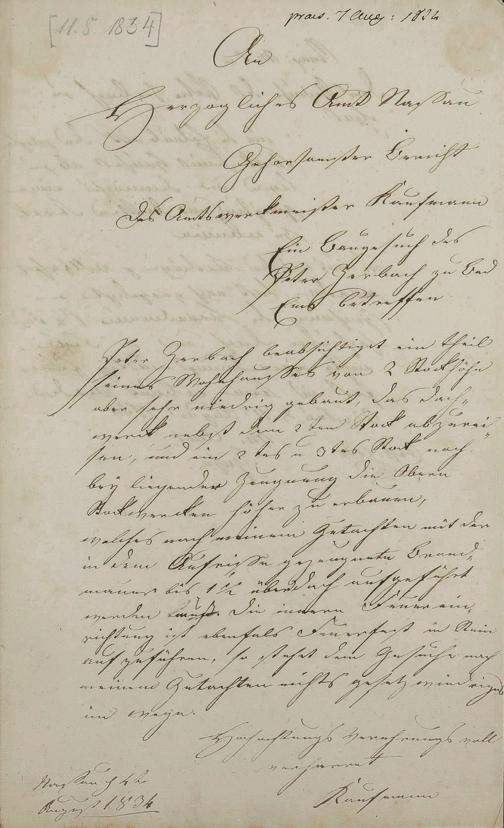 [11.8. 1834]
praes. 7 Aug: 1834
An
Herzogliches Amt Nassau
Gehorsamster Bericht
des Amtswerkmeister Kaufmann
Ein Baugesuch des
Peter Zerbach zu Bad
Ems betreffen
Peter Zerbach beabsichtiget ein theil
seines Wohnhausses von 2 Stockhöhe
aber sehr niedrig gebaut, das Dach-
werck nebst dem 2ten Stock abzurei-
sen, und ein 2tes u 3tes Stock nach
bey liegender Zeugnung die Obern
Stockwercken höher zu erbauen,
welches nach meinem Gutachten mit der
in dem Aufrisse gezeugnete Brand-
mauer bis 1½ überdach aufgeführt
werden Die innern Feuerein-
richtung ist ebenfals Feuerfest in Stein
auf zuführen, so stehet dem Gesuche nach
meinem Gutachten nichts gesetzwiedriges
im wege.
Hochachtungs Verehrungs voll
verharret
Kaufmann
Nassau d 4t
August 1834